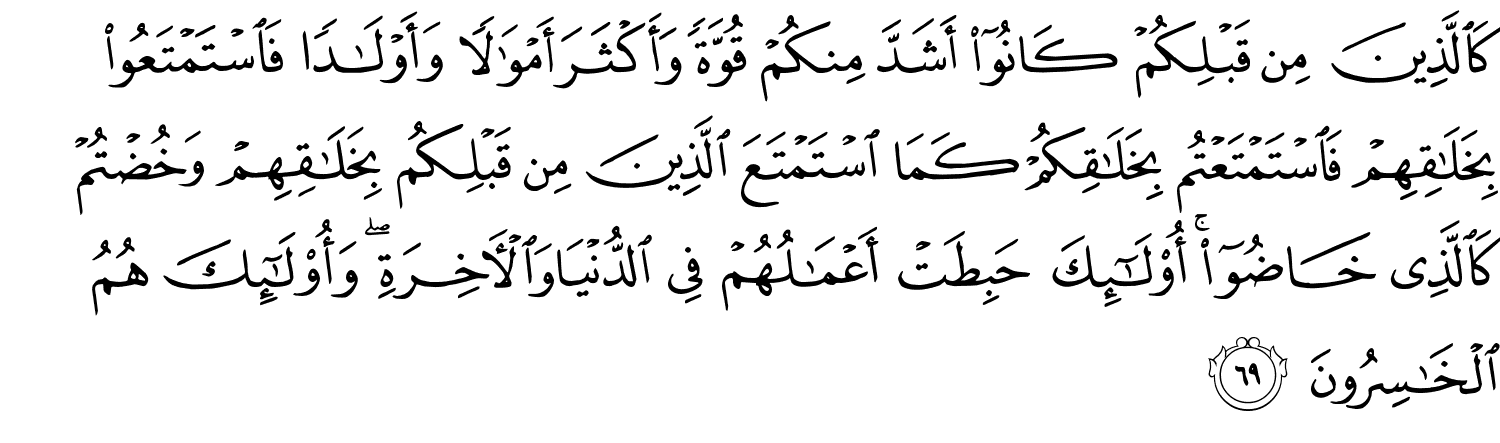 كَٱلَّذِينَ مِن قَبْلِكُمْ كَانُوٓا۟ أَشَدَّ مِنكُمْ قُوَّةً وَأَكْثَرَ أَمْوَٰلًا وَأَوْلَـٰدًا فَٱسْتَمْتَعُوا۟
بِخَلَـٰقِهِمْ فَٱسْتَمْتَعْتُم بِخَلَـٰقِكُمْ كَمَا ٱسْتَمْتَعَ ٱلَّذِينَ مِن قَبْلِكُم بِخَلَـٰقِهِمْ وَخُضْتُمْ
كَٱلَّذِى خَاضُوٓا۟ ۚ أُو۟لَـٰٓئِكَ حَبِطَتْ أَعْمَـٰلُهُمْ فِى ٱلدُّنْيَا وَٱلْـَٔاخِرَةِ ۖ وَأُو۟لَـٰٓئِكَ هُمُ
ٱلْخَـٰسِرُونَ ٦٩